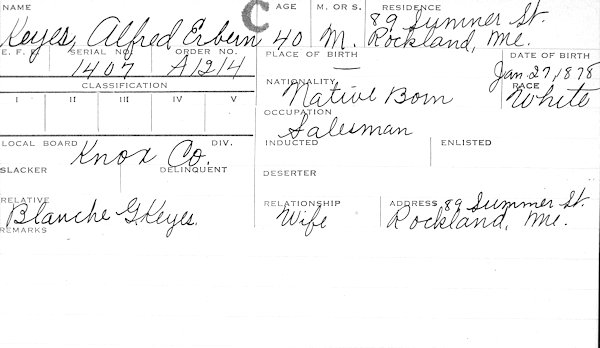 NAME C AGE M. OR S. RESIDENCE
89 Summer St.
Keyes, Alfred Erbern 40 M. Rockland, Me.
E. F. E. SERIAL NO. ORDER NO. PLACE OF BIRTH DATE OF BIRTH
1407 A1214 — Jan. 27, 1878
CLASSIFICATION NATIONALITY RACE
I II III IV V Native Born White
OCCUPATION
Salesman
LOCAL BOARD DIV. INDUCTED ENLISTED
Knox Co.
SLACKER DELINQUENT DESERTER
RELATIVE RELATIONSHIP ADDRESS 89 Summer St.
Blanche G. Keyes. Wife Rockland, Me.
REMARKS